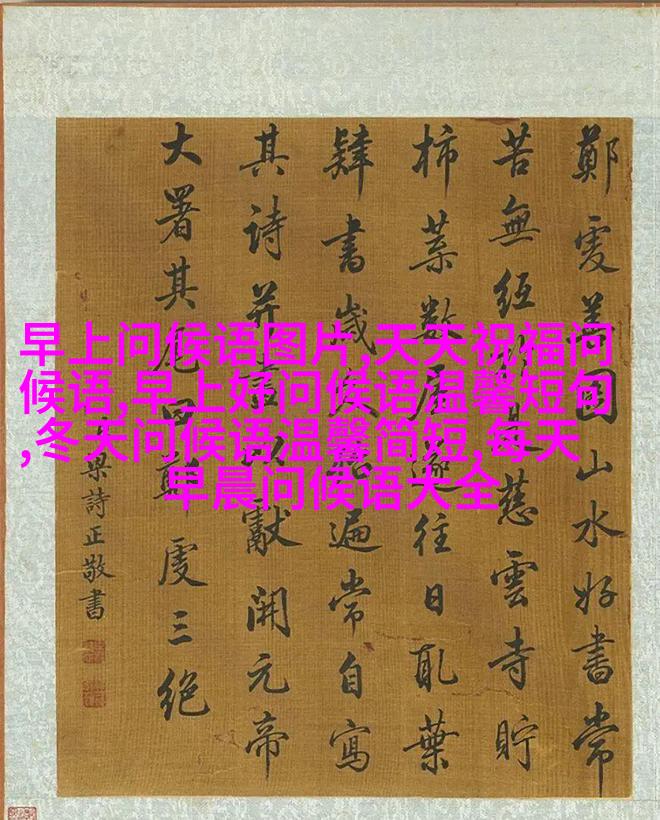 早上问候语图片,天天祝福问
候语,早上好问候语温馨短句
,冬天问候语温馨简短,每天
早晨问候语大全
鄭虔善圖山水好書常
苦無紙於是慈雲寺貯
柿葉數屋遂往日取葉
肄書歲久殆遍常自寫
其詩并畫以獻開元帝
大署其尾曰鄭虔三絕
梁詩正敬書